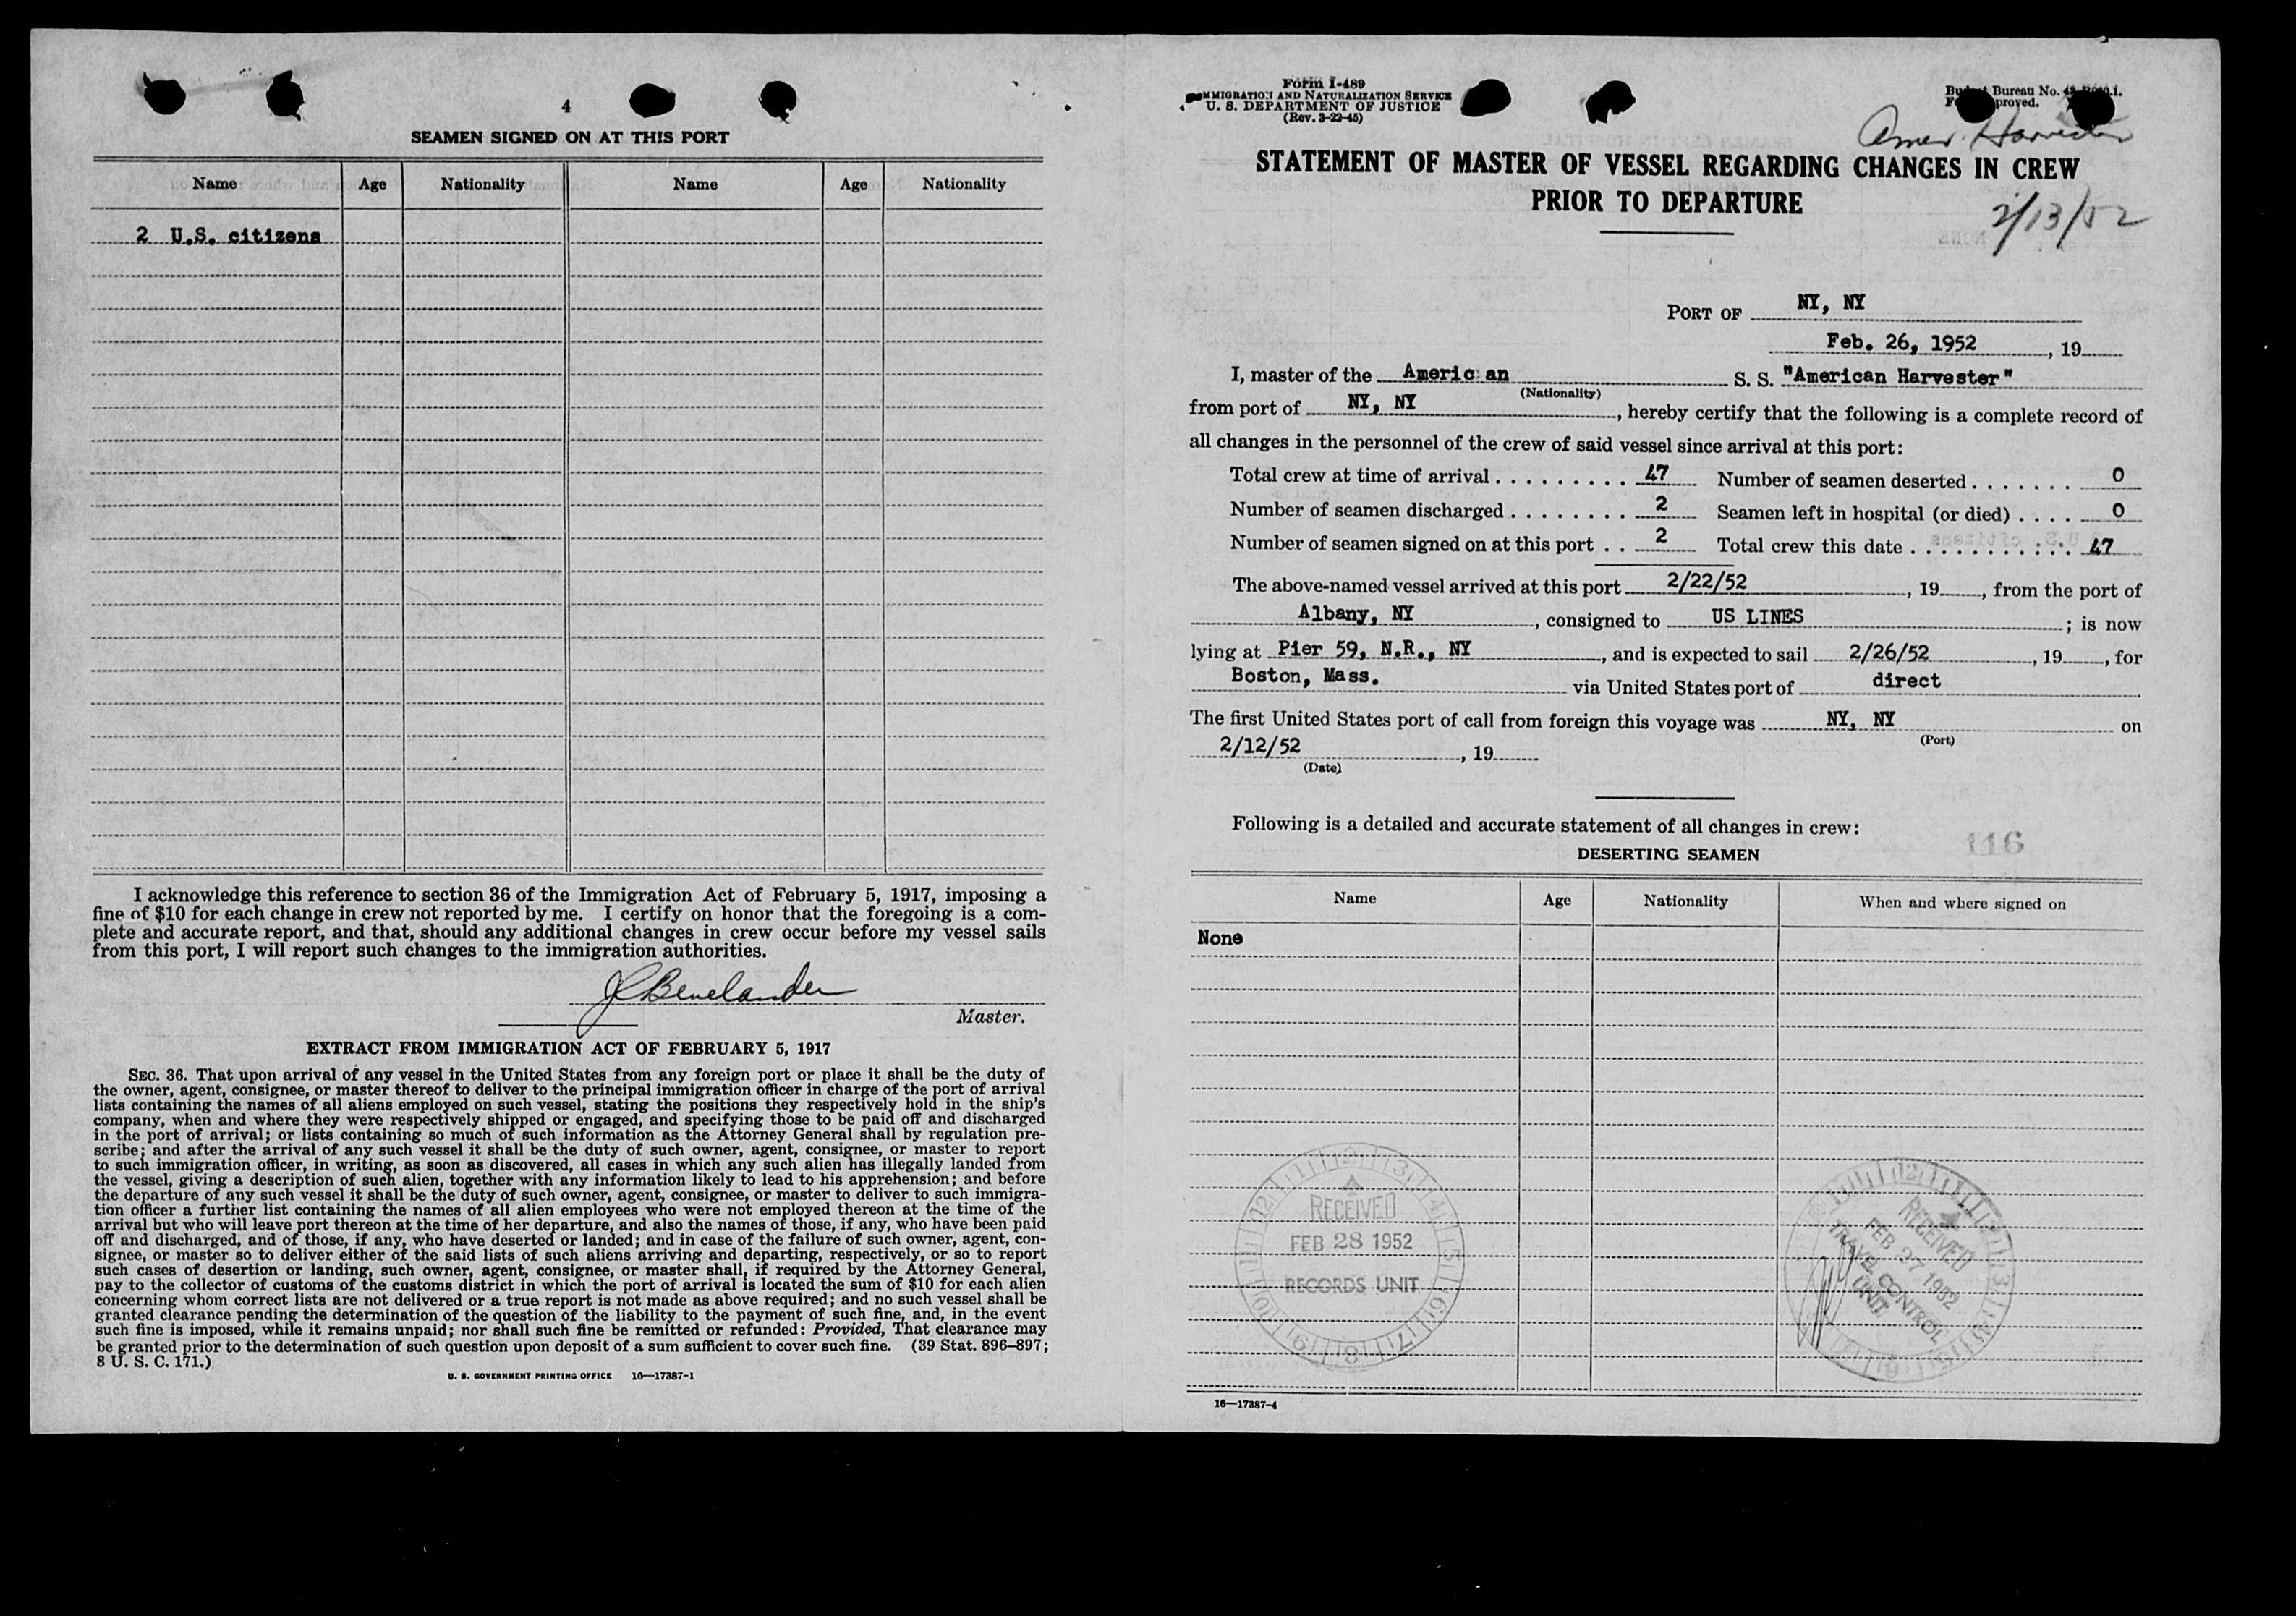 4
SEAMEN SIGNED ON AT THIS PORT
Name Age Nationality Name Age Nationality
2 U.S. citizens
I acknowledge this reference to section 36 of the Immigration Act of February 5, 1917, imposing a
fine of $10 for each change in crew not reported by me. I certify on honor that the foregoing is a com-
plete and accurate report, and that, should any additional changes in crew occur before my vessel sails
from this port, I will report such changes to the immigration authorities.
Master.
EXTRACT FROM IMMIGRATION ACT OF FEBRUARY 5, 1917
SEC. 36. That upon arrival of any vessel in the United States from any foreign port or place it shall be the duty of
the owner, agent, consignee, or master thereof to deliver to the principal immigration officer in charge of the port of arrival
lists containing the names of all aliens employed on such vessel, stating the positions they respectively hold in the ship's
company, when and where they were respectively shipped or engaged, and specifying those to be paid off and discharged
in the port of arrival; or lists containing so much of such information as the Attorney General shall by regulation pre-
scribe; and after the arrival of any such vessel it shall be the duty of such owner, agent, consignee, or master to report
to such immigration officer, in writing, as soon as discovered, all cases in which any such alien has illegally landed from
the vessel, giving a description of such alien, together with any information likely to lead to his apprehension; and before
the departure of any such vessel it shall be the duty of such owner, agent, consignee, or master to deliver to such immigra-
tion officer a further list containing the names of all alien employees who were not employed thereon at the time of the
arrival but who will leave port thereon at the time of her departure, and also the names of those, if any, who have been paid
off and discharged, and of those, if any, who have deserted or landed; and in case of the failure of such owner, agent, con-
signee, or master so to deliver either of the said lists of such aliens arriving and departing, respectively, or so to report
such cases of desertion or landing, such owner, agent, consignee, or master shall, if required by the Attorney General,
pay to the collector of customs of the customs district in which the port of arrival is located the sum of $10 for each alien
concerning whom correct lists are not delivered or a true report is not made as above required; and no such vessel shall be
granted clearance pending the determination of the question of the liability to the payment of such fine, and, in the event
such fine is imposed, while it remains unpaid; nor shall such fine be remitted or refunded: Provided, That clearance may
be granted prior to the determination of such question upon deposit of a sum sufficient to cover such fine. (39 Stat. 896–897;
8 U. S. C. 171.)
U. S. GOVERNMENT PRINTING OFFICE 16—17387-1
Form I-489
IMMIGRATION AND NATURALIZATION SERVICE
U. S. DEPARTMENT OF JUSTICE
(Rev. 3-22-45)
Bureau No.
Amer. Harvester
STATEMENT OF MASTER OF VESSEL REGARDING CHANGES IN CREW
PRIOR TO DEPARTURE
2/13/52
PORT OF NY, NY
Feb. 26, 1952, 19
I, master of the American S. S. "American Harvester"
(Nationality)
from port of NY, NY, hereby certify that the following is a complete record of
all changes in the personnel of the crew of said vessel since arrival at this port:
Total crew at time of arrival 47 Number of seamen deserted 0
Number of seamen discharged 2 Seamen left in hospital (or died) 0
Number of seamen signed on at this port 2 Total crew this date 47
The above-named vessel arrived at this port 2/22/52, 19, from the port of
Albany, NY, consigned to US LINES; is now
lying at Pier 59, N.R., NY, and is expected to sail 2/26/52, 19, for
Boston, Mass. via United States port of direct
The first United States port of call from foreign this voyage was NY, NY on
(Port)
2/12/52, 19
(Date)
Following is a detailed and accurate statement of all changes in crew:
116
DESERTING SEAMEN
Name Age Nationality When and where signed on
None
RECEIVED
FEB 28 1952
RECORDS UNIT
RECEIVED
FEB 27 1952
TRAVEL CONTROL
UNIT
16—17387-4